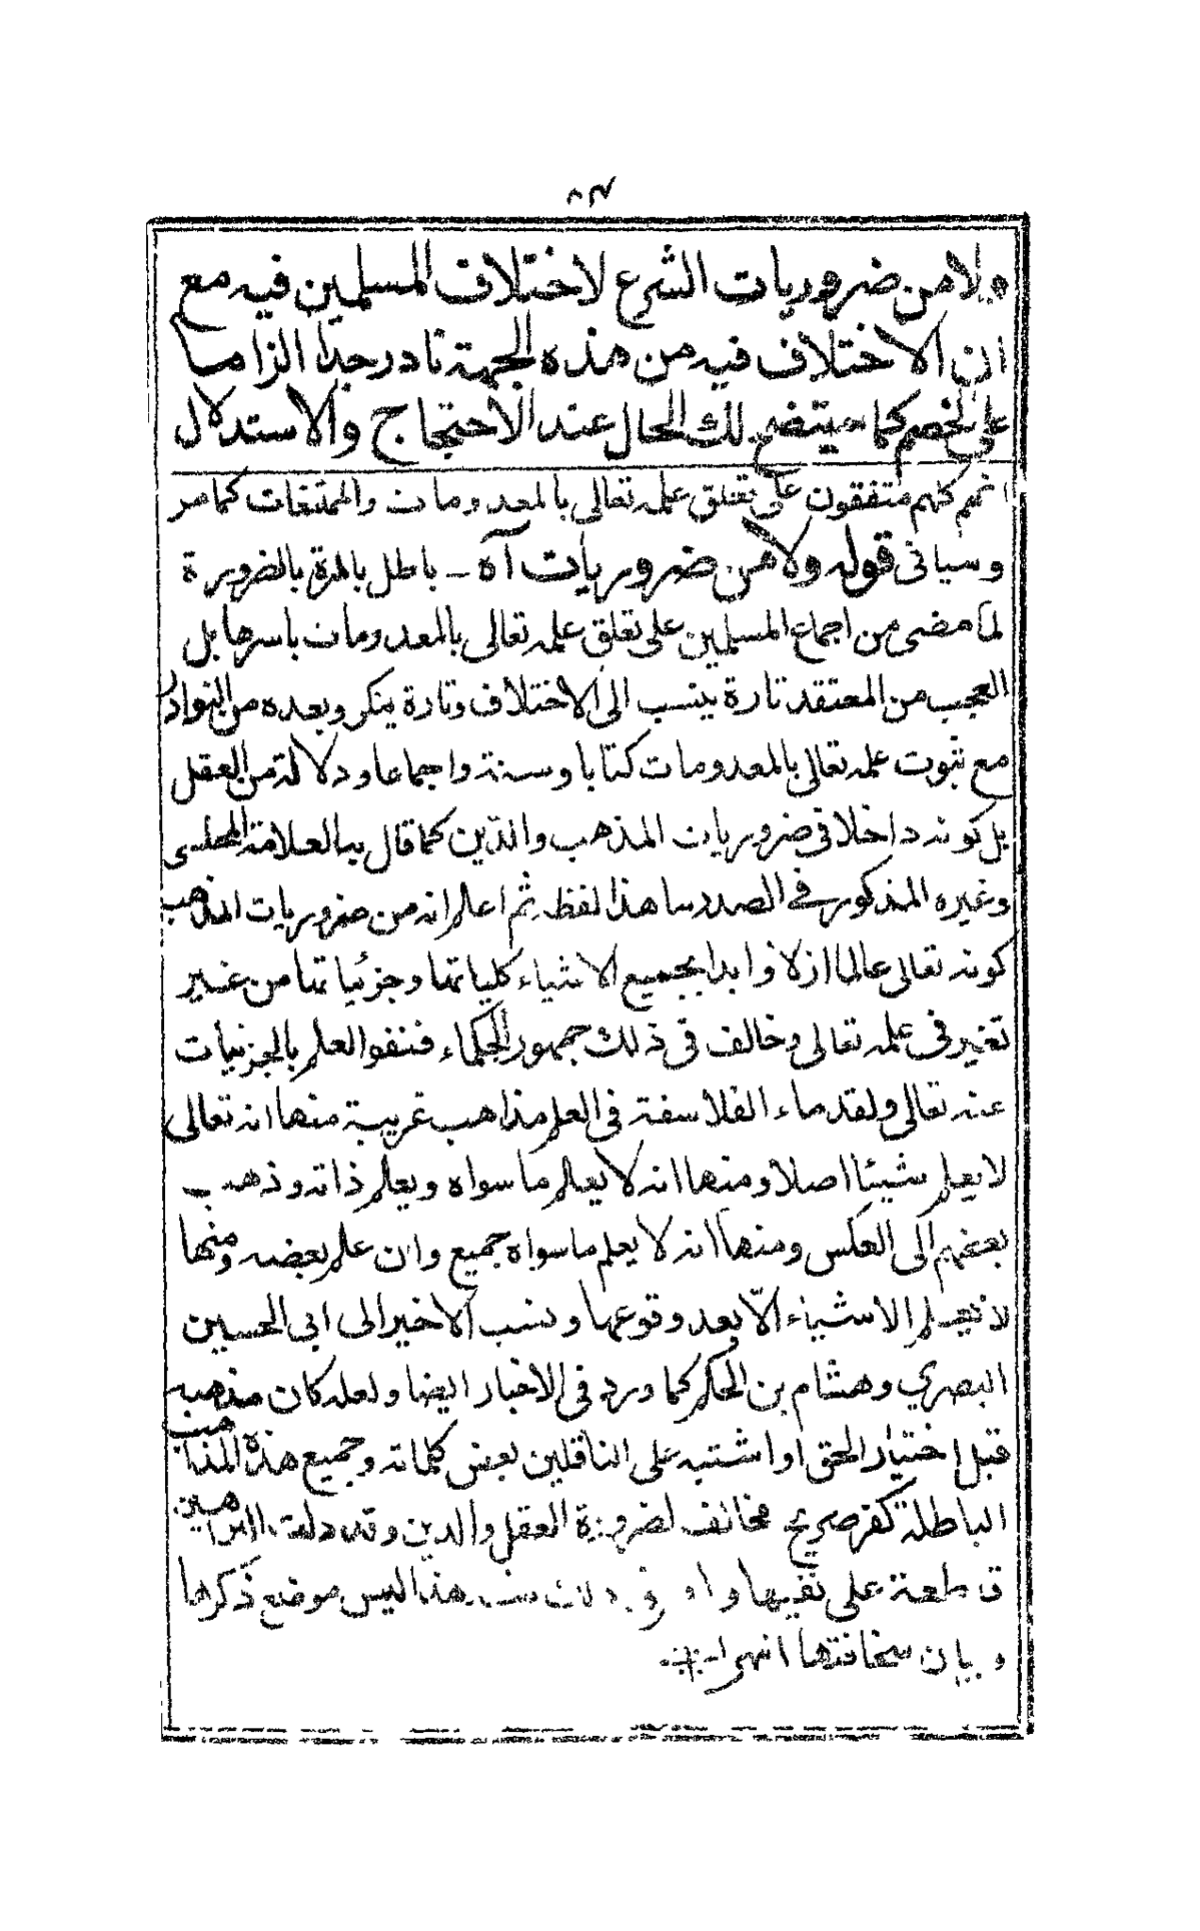 ولا من ضروريات الشرع لاختلاف المسلمين فيه مع
ان الاختلاف فيه من هذه الجهة نادر جدا الزاما
على الخصم كما سيتضح لك الحال عند الاحتجاج والاستدلال
انهم كلهم متفقون على تعلق علمه تعالى بالمعدومات والممتنعات كما مر
وسياتى قوله ولا من ضروريات آه ـ باطل بالمرة بالضرورة
لما مضى من اجماع المسلمين على تعلق علمه تعالى بالمعدومات باسرها بل
العجب من المعتقد تارة ينسب الى الاختلاف وتارة ينكر وبعده من النوادر
مع ثبوت علمه تعالى بالمعدومات كتابا وسنة واجماعا ودلالة من العقل
بل كونه داخلا فى ضروريات المذهب والدين كما قال به العلامة المجلسى
وغيره المذكور فى الصدر ما هذا لفظه ثم اعلم انه من ضروريات المذهب
كونه تعالى عالما ازلا وابدا بجميع الاشياء كلياتها وجزئياتها من غير
تغير فى علمه تعالى وخالف فى ذلك جمهور الحكماء فنفوا العلم بالجزئيات
عنه تعالى ولقدماء الفلاسفة فى العلم مذاهب غريبة منها انه تعالى
لا يعلم شيئا اصلا ومنها انه لا يعلم ما سواه ويعلم ذاته وذهب
بعضهم الى العكس ومنها انه لا يعلم ما سواه جميع وان علم بعضه ومنها
لا يعلم الاشياء الّا بعد وقوعها ونسب الاخير الى ابى الحسين
البصري وهشام بن الحكم كما ورد فى الاخبار ايضا ولعله كان مذهبه
قبل اختيار الحق او اشتبه على الناقلين بعض كلماته وجميع هذه المذاهب
الباطلة كفر صريح مخالف لضرورة العقل والدين وقد دلت البراهين
قاطعة على نفيها هذا ليس موضع ذكرها
وبيان سخافتها انتهى